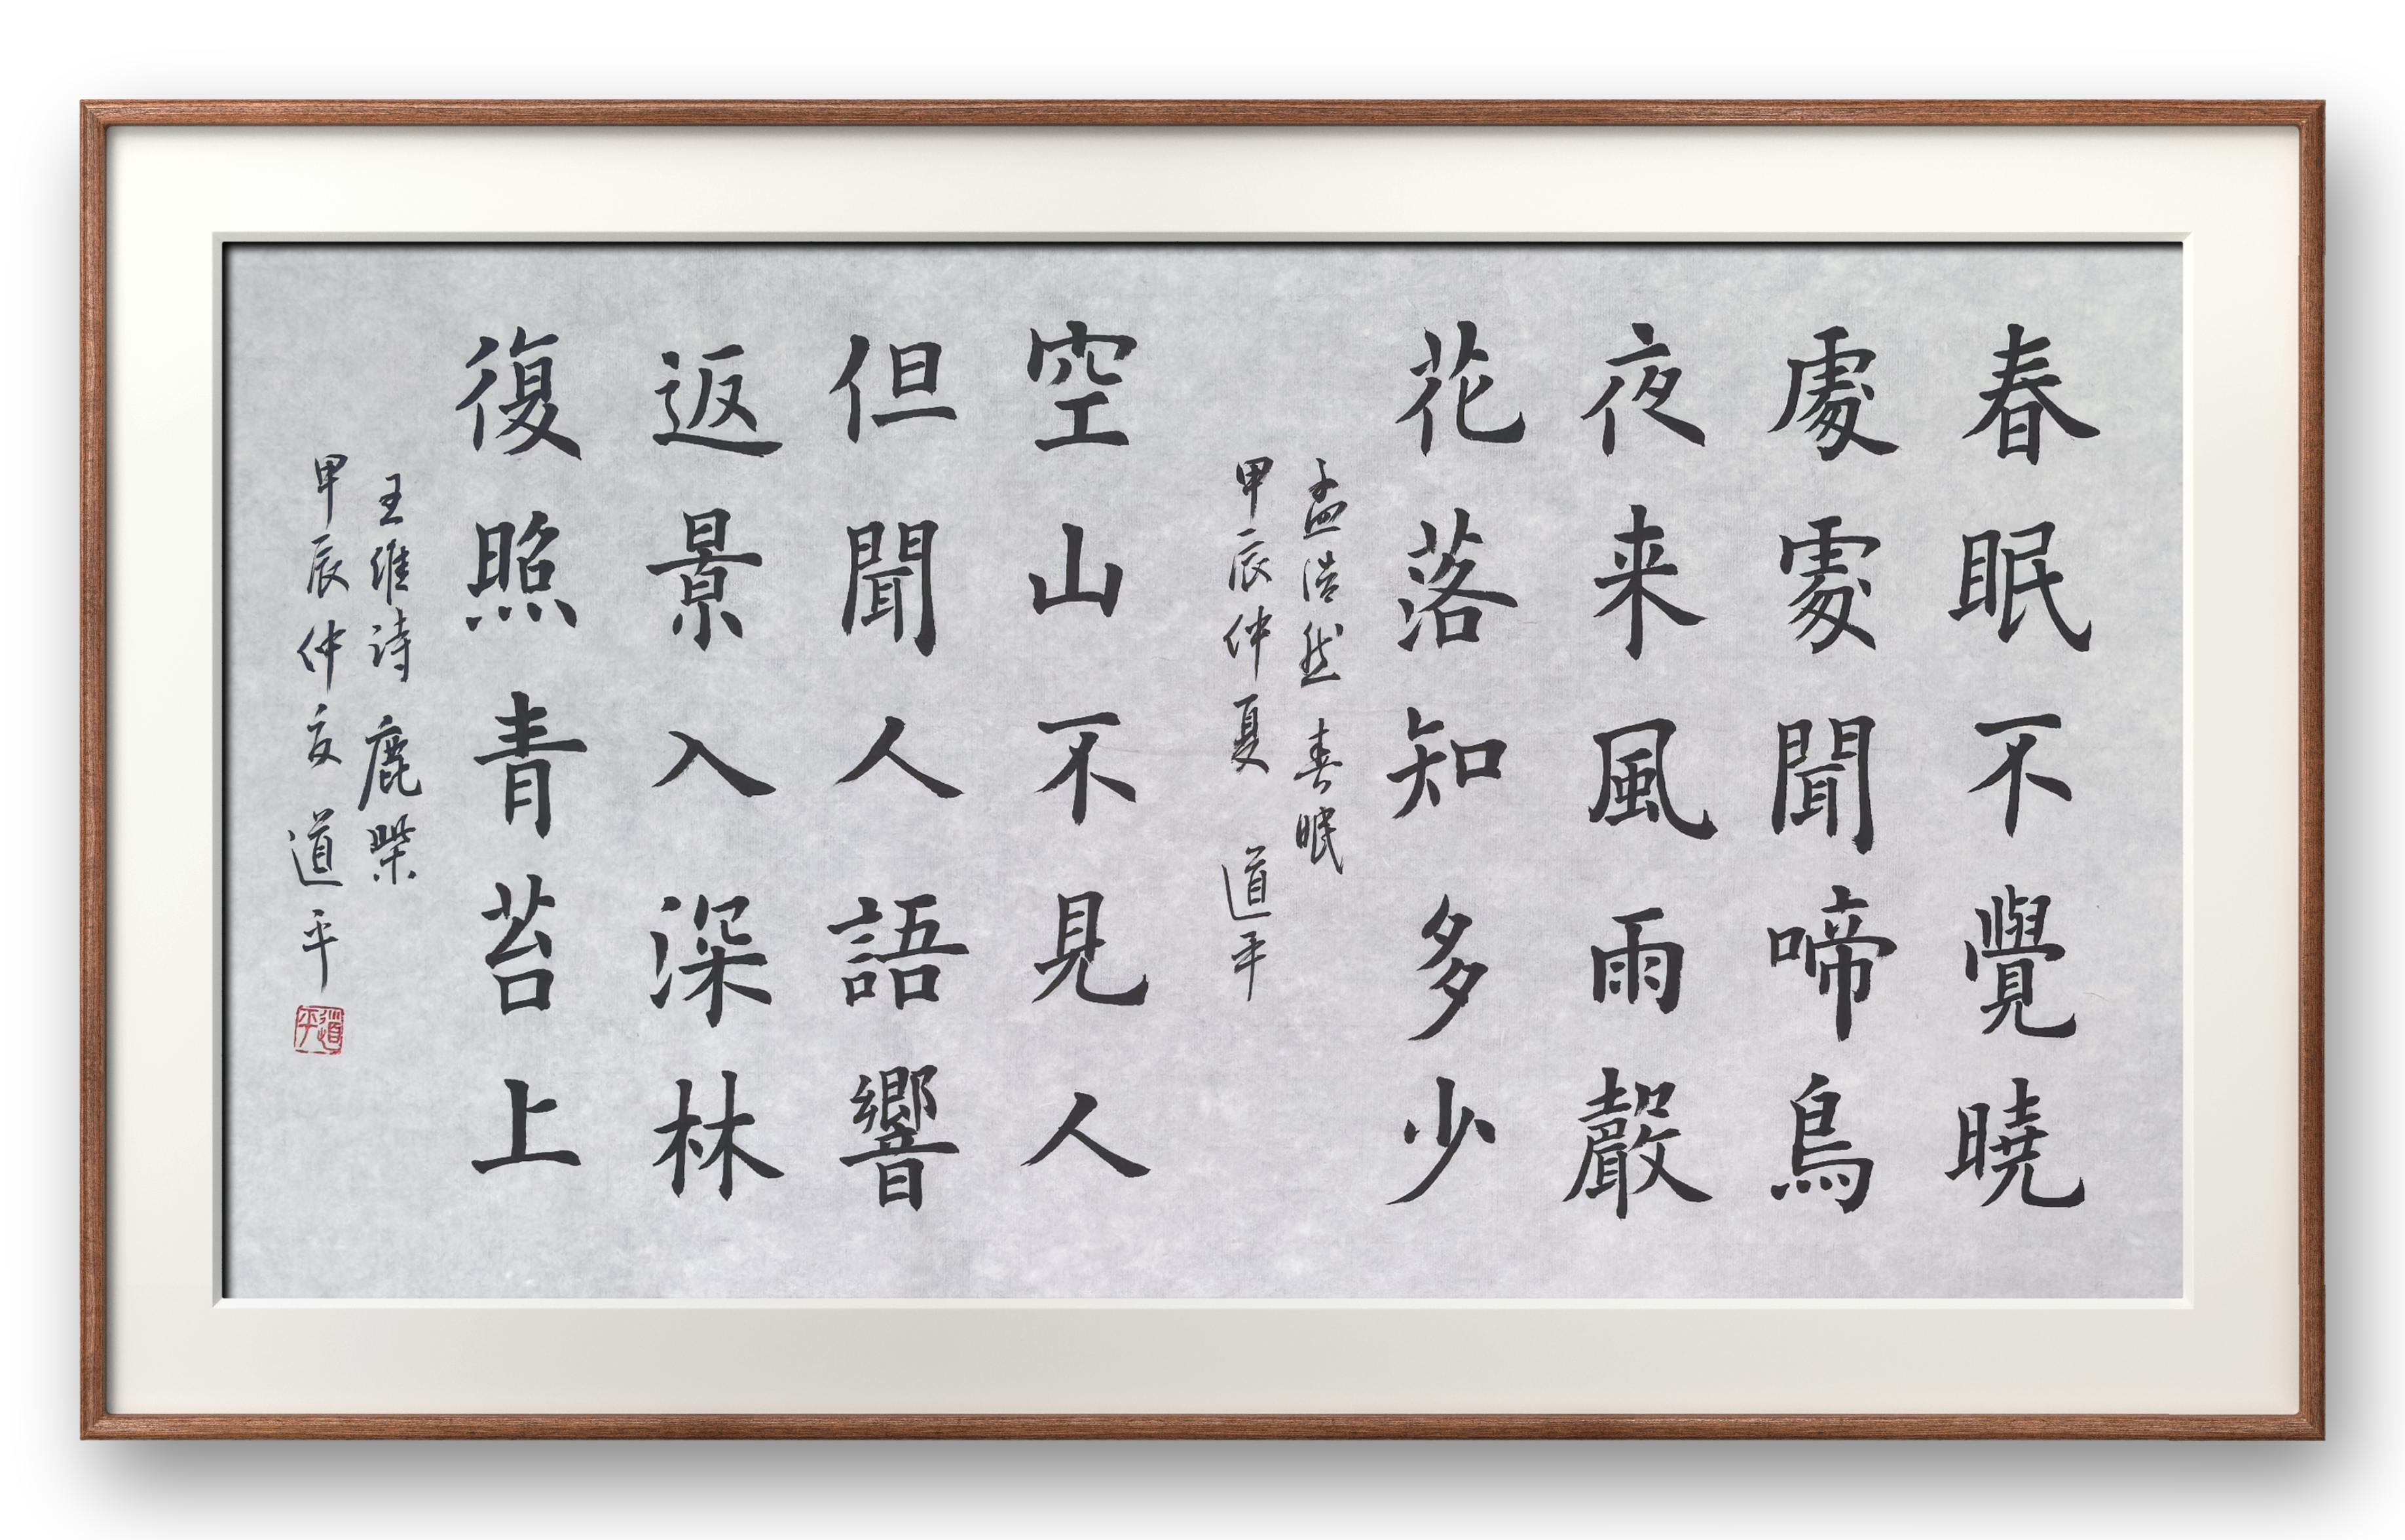 春眠不覺暁
處處聞啼鳥
夜来風雨聲
花落知多少
孟浩然 春眠
甲辰仲夏 道平
空山不見人
但聞人語響
返景入深林
復照青苔上
王維诗 鹿柴
甲辰仲夏 道平
道平